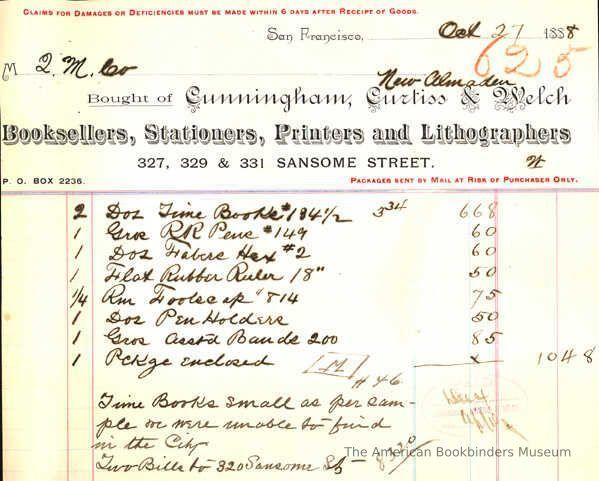 CLAIMS FOR DAMAGES OR DEFICIENCIES MUST BE MADE WITHIN 6 DAYS AFTER RECEIPT OF GOODS.
San Francisco, Oct 27 1888
625
M Q. M. Co
New Almaden
Bought of Cunningham, Curtiss & Welch
Booksellers, Stationers, Printers and Lithographers
327, 329 & 331 SANSOME STREET.
P. O. BOX 2236. PACKAGES SENT BY MAIL AT RISK OF PURCHASER ONLY.
2 Dos Time Books #134 1/2 334 668
1 Gros RR Pens #149 60
1 Dos Fabers Hex #2 60
1 Flat Rubber Ruler 18" 50
1/4 Rm Foolscap #814 75
1 Dos Pen Holders 50
1 Gros Asstd Bands 200 85
1 Pckge enclosed M x 1048
#46
Time Books small as per sam-
ple we were unable to find
in the City
Two Bills to 320 Sansome St
The American Bookbinders Museum